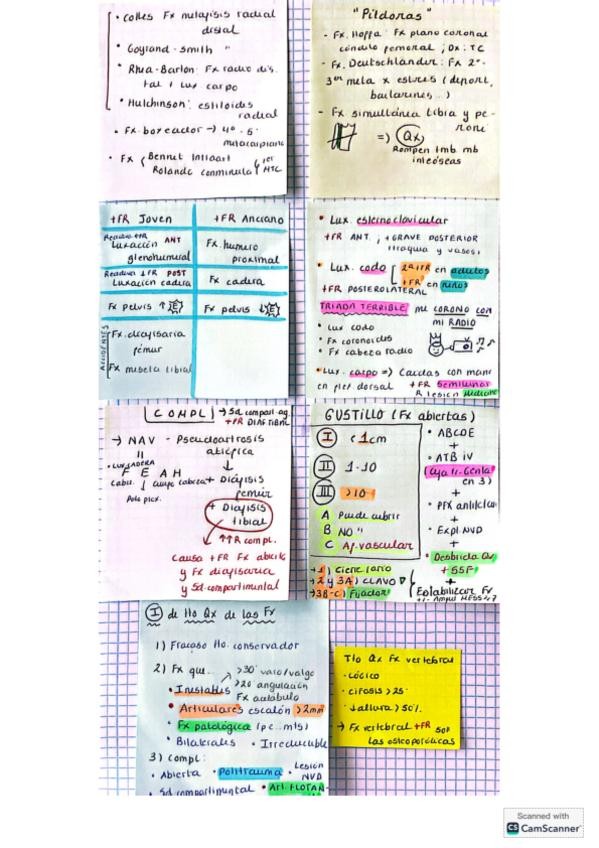 • Colles Fx metafisis radial
distal
• Goyrand-Smith "
• Rhea-Barton: Fx radio dis
tal + lux carpo
• Hutchinson: estiloides
radial
• Fx boxeador → 4º-5º
metacarpiano
• Fx Bennet Intraart
Rolando conminuta 1er MTC
"Píldoras"
- Fx. Hoffa: Fx plano coronal
cóndilo femoral; Dx: TC
- Fx. Deutschländer: Fx 2º-
3er meta x estrés (deport,
bailarines...)
- Fx simultánea tibia y pe-
roné
=> Qx
Rompen tmb mb
inteóseas
+FR Joven
+FR Anciano
Luxación ANT
glenohumeral
Fx. humero
proximal
Luxación cadera
Fx cadera
Fx pelvis ↑E
Fx pelvis ↓E
ACCIDENTES
Fx. diafisaria
fémur
Fx meseta tibial
• Lux. esternoclavicular
+FR ANT, +GRAVE POSTERIOR
tráquea y vasos
• Lux. codo 2ª FR en adultos
+FR en niños
+FR POSTEROLATERAL
TRIADA TERRIBLE me CORONO CON
mi RADIO
• Lux codo
• Fx coronoides
• Fx cabeza radio
• Lux. carpo => Caidas con mano
en flex dorsal +FR Semilunar
COMPL
→ Sd. compart. ag.
+FR DIAF TIBIAL
→ NAV - Pseudoartrosis
atrófica
• LUX CADERA
F E A H
Cuerpo Cabeza
Polo prox.
+ Diáfisis
femur
+ Diáfisis
tibial
↑↑R compl.
Causa +FR Fx abierta
y Fx diafisaria
y Sd. compartimental
GUSTILLO (Fx abiertas)
I < 1cm
II 1-10
III >10
A Puede cubrir
B NO "
C Af. vascular
• ABCDE
+
• ATB IV
(Cefa ± Genta
en 3)
+
• PFX antitetan
+
• Expl. NVD
+
• Desbrida Qx
+ SSF
+
• Estabilizar Fx
+1) Cierre 1ario
+2 y 3A) CLAVO
+3B-C) Fijador
I de tto Qx de las Fx
1) Fracaso tto. conservador
2) Fx que...
>30º varo/valgo
>20 angulación
• Inestables Fx acetabulo
• Articulares escalón >2mm
• Fx patológica (pe. mts)
• Bilaterales • Irreducible
3) Compl:
• Abierta • Politrauma • Lesión
NVD
• Sd. compartimental • Art. FLOTAN
Tto Qx Fx vertebral
• LÓGICO
• cifosis >25º
• ↓altura >50%
→ Fx vertebral +FR son
las osteoporóticas
Scanned with
CS CamScanner